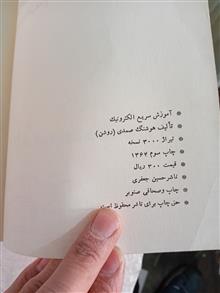 آموزش سریع الکترونیک
تألیف هوشنگ صمدی (روشن)
تیراژ ۳۰۰۰ نسخه
چاپ سوم ۱۳۶۴
قیمت ۳۰۰ ریال
ناشر حسین جعفری
چاپ وصحافی صنوبر
حق چاپ برای ناشر محفوظ است